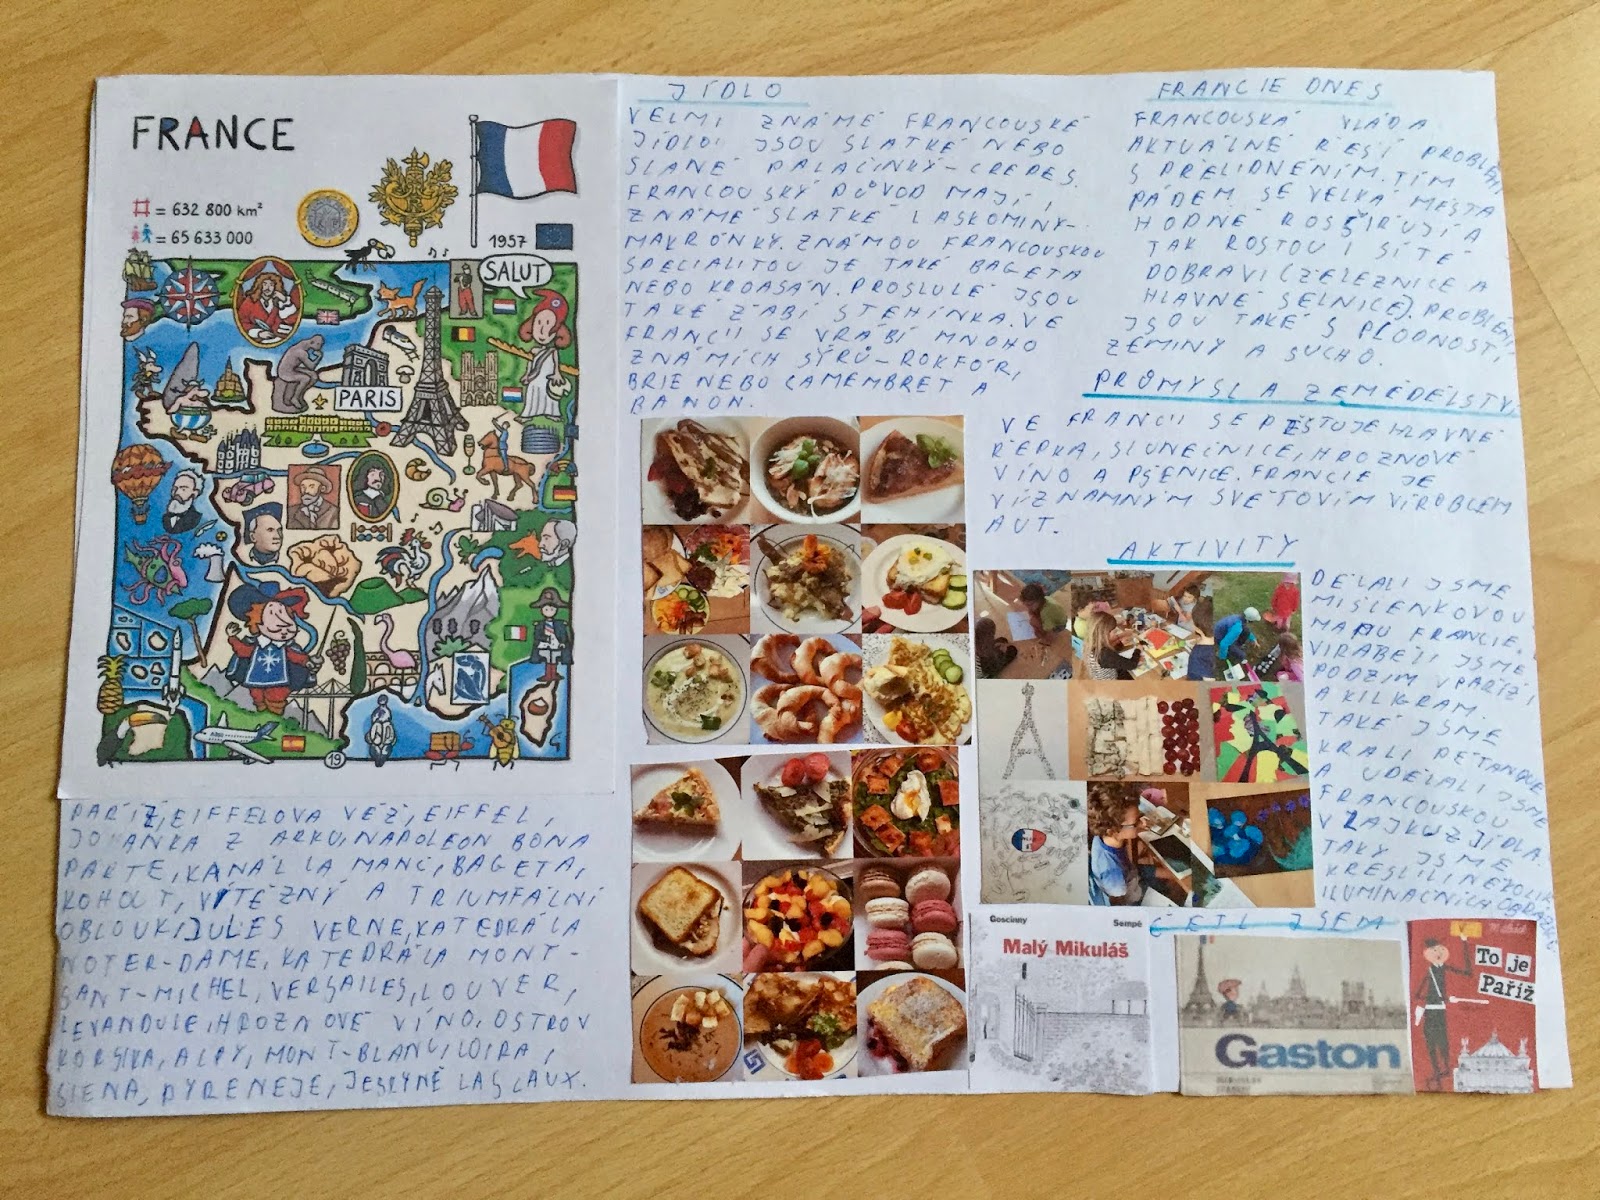 FRANCE
= 632 800 km²
= 65 633 000
1957
SALUT
PARIS
19
PAŘÍŽ, EIFFELOVA VĚŽ, EIFFEL,
JOHANKA Z ARKU, NAPOLEON BONA
PARTE, KANÁL LA MANC, BAGETA,
KOHOUT, VÍTĚZNÝ A TRIUMFÁLNÍ
OBLOUK, JULES VERNE, KATEDRÁLA
NOTER-DAME, KATEDRÁLA MONT-
SANT-MICHEL, VERSAILES, LOUVER,
LEVANDULE, HROZNOVÉ VÍNO, OSTROV
KORSIKA, ALPY, MONT-BLANC, LOIRA,
SIENA, PYRENEJE, JESKYNĚ LASCAUX.
JÍDLO
VELMI ZNÁMÉ FRANCOUSKÉ
JÍDLO JSOU SLATKÉ NEBO
SLANÉ PALAČINKY-CREPES.
FRANCOUSKÝ PŮVOD MAJÍ I
ZNÁMÉ SLATKÉ LASKOMINY-
MAKRÓNKY. ZNÁMOU FRANCOUSKOU
SPECIALITOU JE TAKÉ BAGETA
NEBO KROASÁN. PROSLULÉ JSOU
TAKÉ ŽABÍ STEHÍNKA. VE
FRANCII SE VRÁBÍ MNOHO
ZNÁMÍCH SÝRŮ-ROKFÓR,
BRIE NEBO CAMEMBRET A
BANON.
FRANCIE DNES
FRANCOUSKÁ VLÁDA
AKTUÁLNĚ ŘEŠÍ PROBLÉM
S PŘELIDNĚNÍM. TÍM
PÁDEM SE VELKÁ MĚSTA
HODNĚ ROSŠIRUJÍ A
TAK ROSTOU I SÍTĚ
DOBRAVI (ŽELEZNICE A
HLAVNĚ SELNICE). PROBLÉMI
JSOU TAKÉ S PLODNOSTÍ
ZEMINY A SUCHO.
PRŮMYSL A ZEMĚDĚLSTVÍ
VE FRANCII SE PĚSTUJE HLAVNĚ
ŘEPKA, SLUNEČNICE, HROZNOVÉ
VÍNO A PŠENICE. FRANCIE JE
VÍZNAMNÝM SVĚTOVÍM VÍROBCEM
AUT.
AKTIVITY
DĚLALI JSME
MIŠLENKOVOU
MAPU FRANCIE.
VIRÁBĚLI JSME
PODZIM V PAŘÍŽI
A KILIGRAM.
TAKÉ JSME
HRÁLI PÉTANQUE
A UDĚLALI JSME
FRANCOUSKOU
VLAJKU Z JÍDLA.
TAKY JSME
KRESLILI NĚKOLIK
ILUMINAČNÍCH OBRÁZKŮ
ČETL JSEM
Goscinny Sempé
Malý Mikuláš
Gaston
To je
Paříž